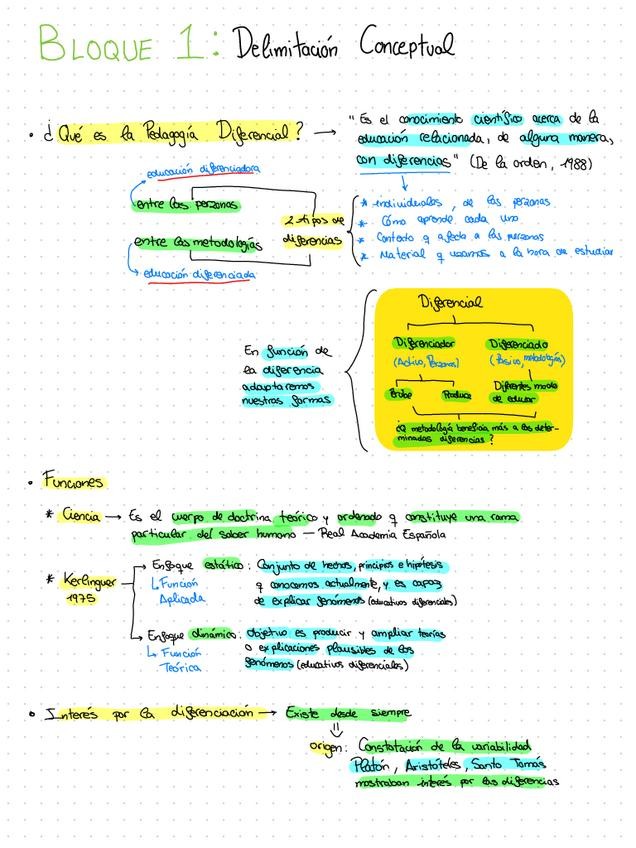 BLOQUE 1: Delimitación Conceptual
• ¿Qué es la Pedagogía Diferencial? → "Es el conocimiento científico acerca de la
educación relacionada, de alguna manera,
con diferencias" (De la orden, 1988)
educación diferenciadora
entre las personas
2 tipos de
diferencias
entre las metodologías
educación diferenciada
* individuales, de las personas
* Cómo aprende cada uno
* Contexto q afecta a las personas
* Material q usamos a la hora de estudiar
En función de
la diferencia
adaptaremos
nuestras formas
Diferencial
Diferenciador
(Activo, Personas)
Diferenciado
(Pasivo, metodologías)
Produce
Diferentes modos
de educar
¿Q metodología beneficia más a las deter-
minadas diferencias?
• Funciones
* Ciencia → Es el cuerpo de doctrina teórico y ordenado q constituye una rama
particular del saber humano — Real Academia Española
* Kerlinguer
1975
Enfoque estático: Conjunto de hechos, principios e hipótesis
q conocemos actualmente, y es capaz
de explicar fenómenos (educativos diferenciales)
↳ Función
Aplicada
Enfoque dinámico: Objetivo es producir y ampliar teorías
o explicaciones plausibles de los
fenómenos (educativos diferenciales)
↳ Función
Teórica
• Interés por la diferenciación → Existe desde siempre
origen: Constatación de la variabilidad
Platón, Aristóteles, Santo Tomás
mostraban interés por las diferencias